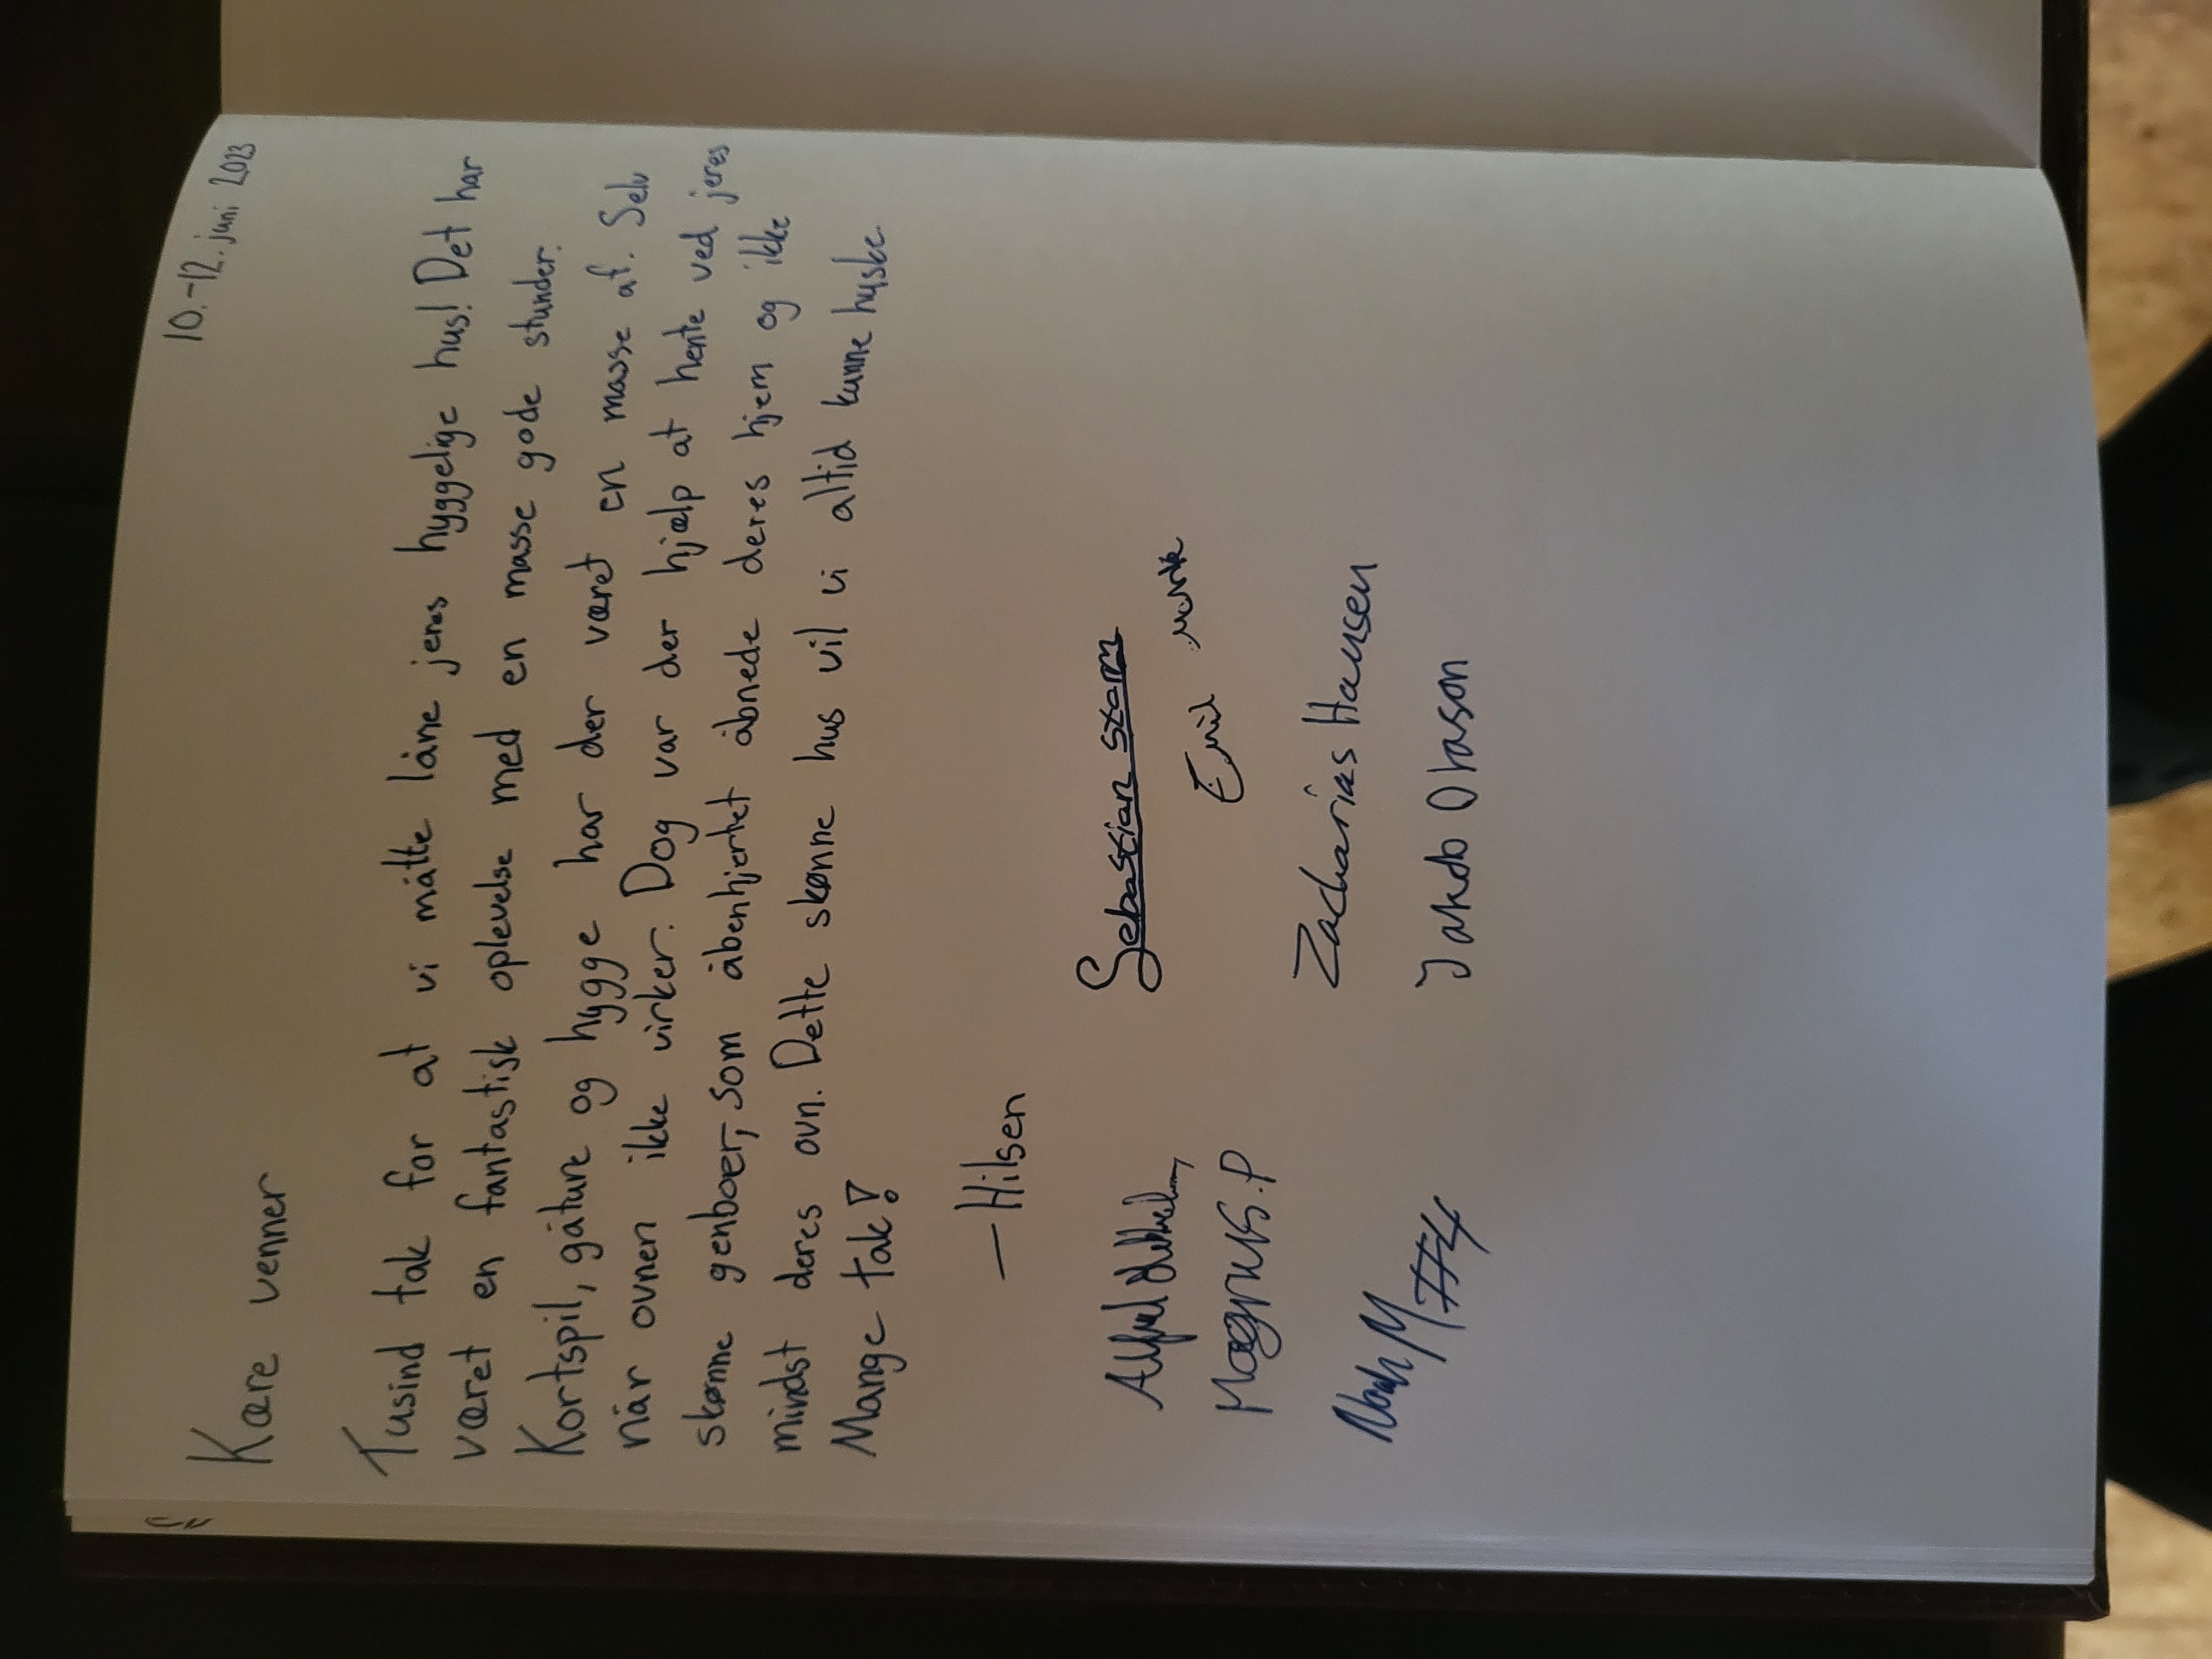 10.-12. juni 2023
Kære venner
Tusind tak for at vi måtte låne jeres hyggelige hus! Det har
været en fantastisk oplevelse med en masse gode stunder.
Kortspil, gåture og hygge har der været en masse af. Selv
når ovnen ikke virker. Dog var der hjælp at hente ved jeres
skønne genboer, som åbenhjertet åbnede deres hjem og ikke
mindst deres ovn. Dette skønne hus vil vi altid kunne huske.
Mange tak!
— Hilsen
Alfred
Sebastian Storm
Emil
Magnus.P
Zacharias Hansen
Noah M #4
Jakob Olason